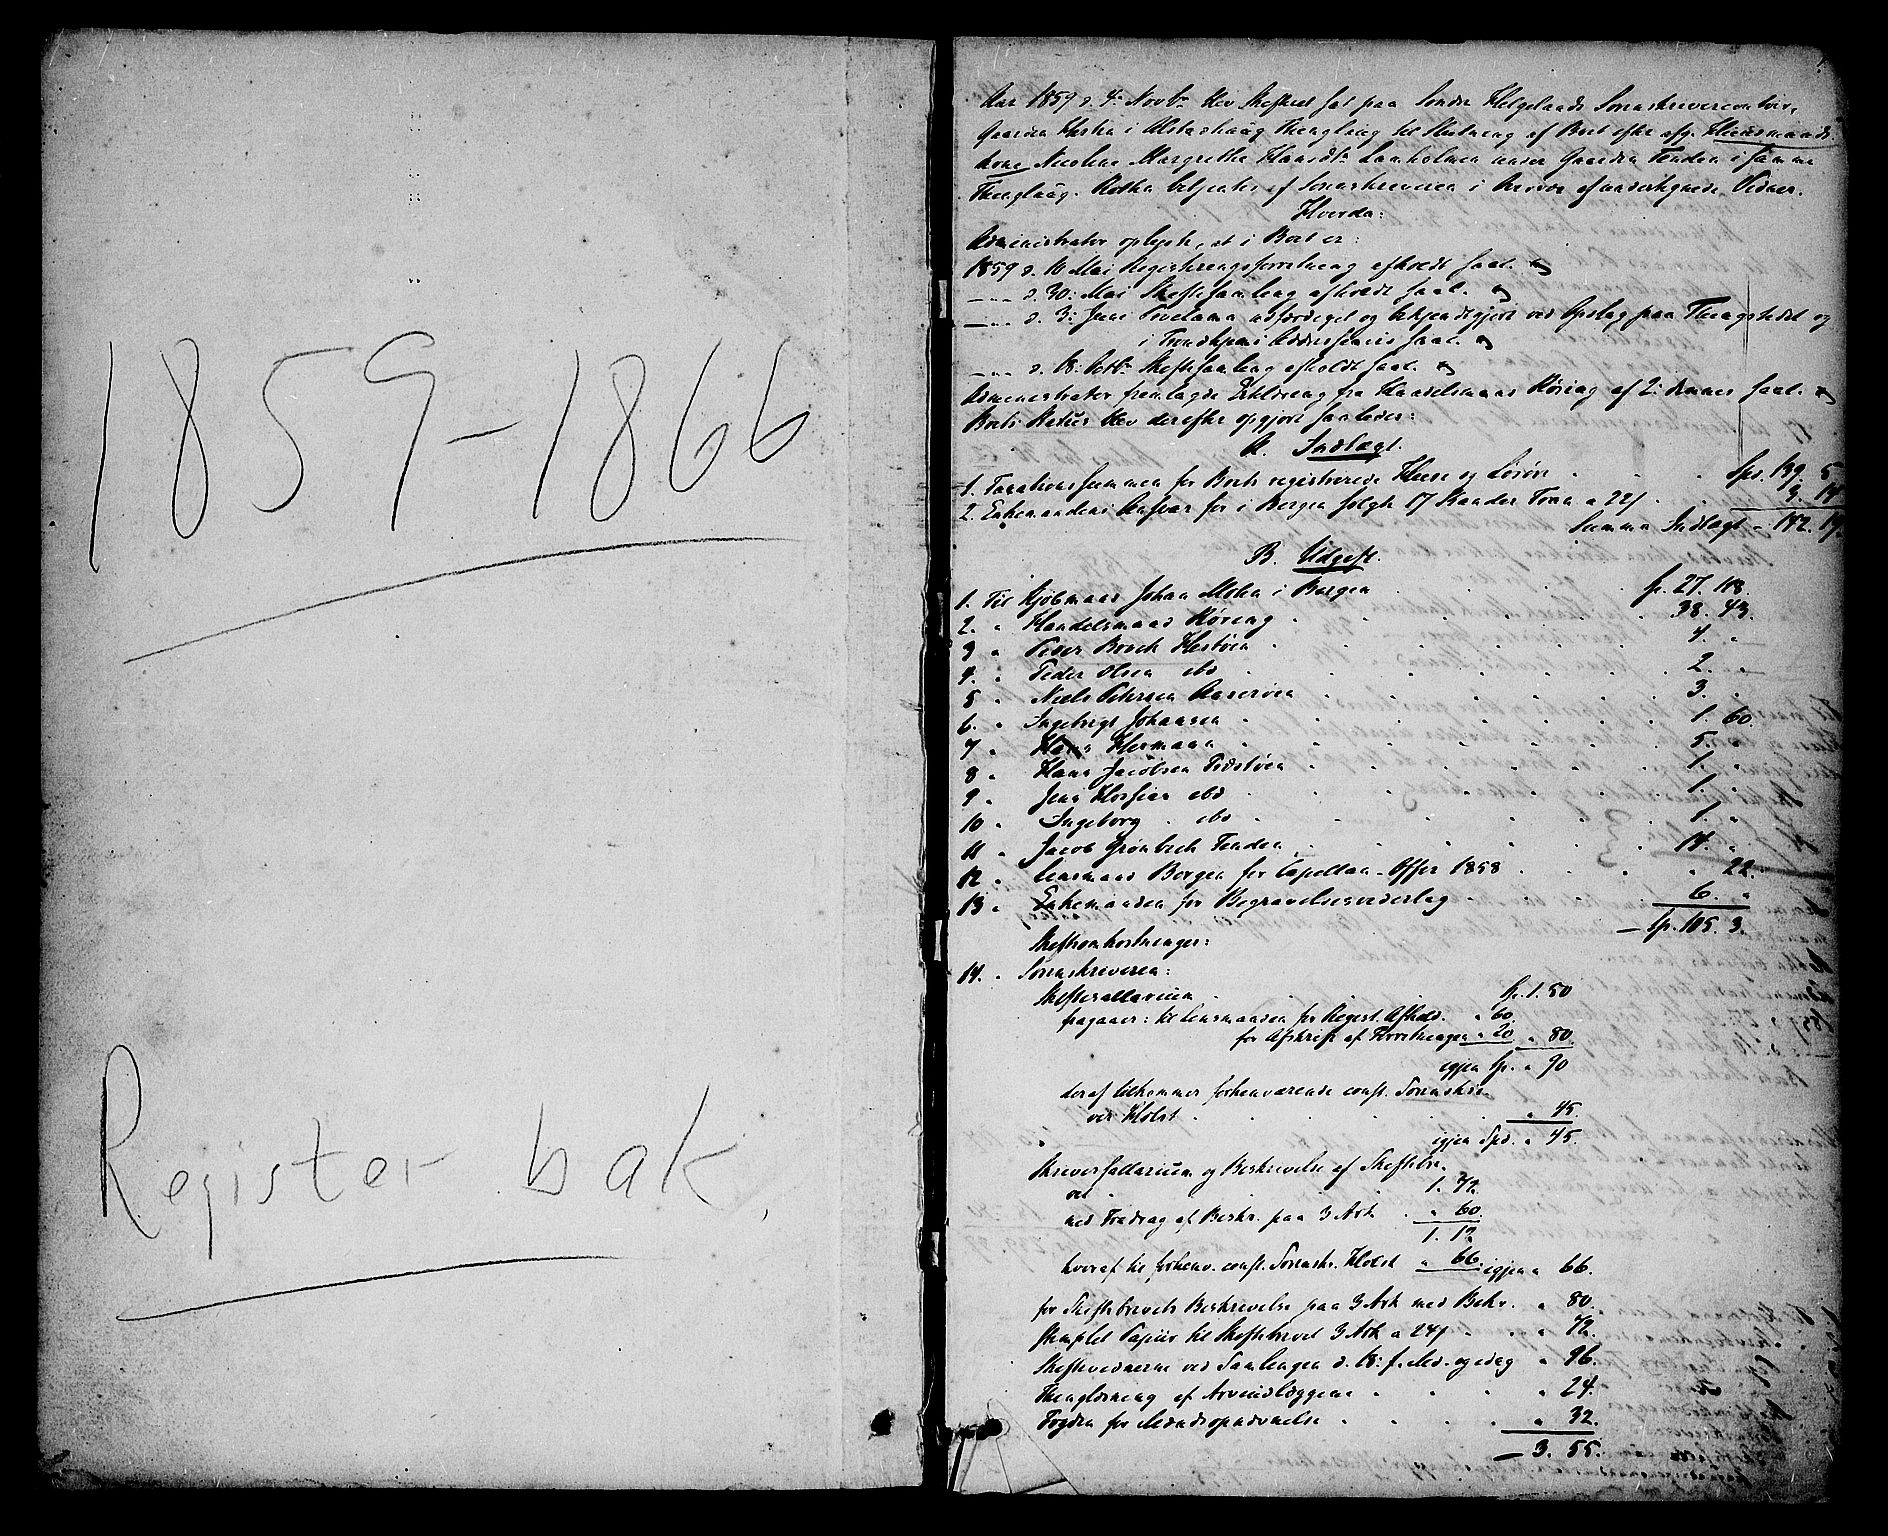 1859-1866
Register bak
Aar 1859 d. 4 Novbr blev Skifteret sat paa Søndre Helgelands Sorenskriverembeir,
Gaarden i Alstahaug Thinglaug til Slutning af Boet efter afg. Huusmands
kone Nicoline Margrethe Hansdtr Langholmen under Gaarden Tenden i samme
Thinglaug. Retten betjentes af Sorenskriveren i Overvær af undertegnede Vidner.
Hvorda:
Administrator oplyste, at i Boet er:
1859 d. 10 Mai Registreringsforretning afholdt saal.
d. 30: Mai Skiftesamling afholdt saal.
d. 3: Juni Proclama udfærdiget og bekjendtgjort ved Opslag paa Thingstedet og
i Trondhjems Adresseavis saal.
d. 18: Octbr Skiftesamling afholdt saal.
Administrator fremlagde Erklæring fra Handelsmand Røring af 2: dennes saal.
Boets Status blev derefter opgjort saaledes:
A. Indtægt.
1. Taxationssummen for Boets registrerede Huse og Løsøre Spd. 139. 5
2. Enkemandens Ansvar for i Bergen solgte 17 Kander Tran a 22 3. 14
Summa Indtægt 142. 19
B. Udgift.
1. Til Kjøbmand Johan Mohn i Bergen Sp. 27. 118.
2. " Handelsmand Røring 38. 43.
3 " Peder Borch 4. "
4. " Peder Olsen ibd 2. "
5 " Niels Petersen 3. "
6. " Ingebrigt Johansen 1. 60.
7 " Hans Hermann 5. "
8 " Hans Jacobsen 1. "
9 " Jens ibd 1. "
10 " Ingeborg ibd 1. "
11 " Jacob Grønbech Tenden 14. "
12 " Lensmand Borgen for Capellan-Offer 1858 " 22.
13 " Enkemanden for Begravelsesvederlag 6. "
Sp. 105. 3.
Skifteomkostninger:
14. " Sorenskriveren:
Skiftesallarium Sp. 1. 50
fragaaer: til Lensmanden for Regist. Afhold. " 60
for Afskrift af Forretningen " 20 " 80
igjen Sp. " 90
deraf tilkommer forhenværende const. Sorenskri-
ver Holst " 45
igjen Spd. " 45.
Skriversallarium og Beskrivelse af Skiftebre-
vet 1. 72
med Fradrag af Beskr. paa 3 Ark " 60
1. 12
hvoraf til forhenv. const. Sorenskr. Holst " 66. igjen " 66.
for Skiftebrevets Beskrivelse paa 3 Ark med Bekr. " 80.
Stemplet Papiir til Skiftebrevet 3 Ark a 24 " 72.
Skiftevidnerne ved Samlingen d. 18: f. Md. og idag " 96.
Thinglæsning af Arveudlæggene " 24.
Fogden for " 32.
3. 55.